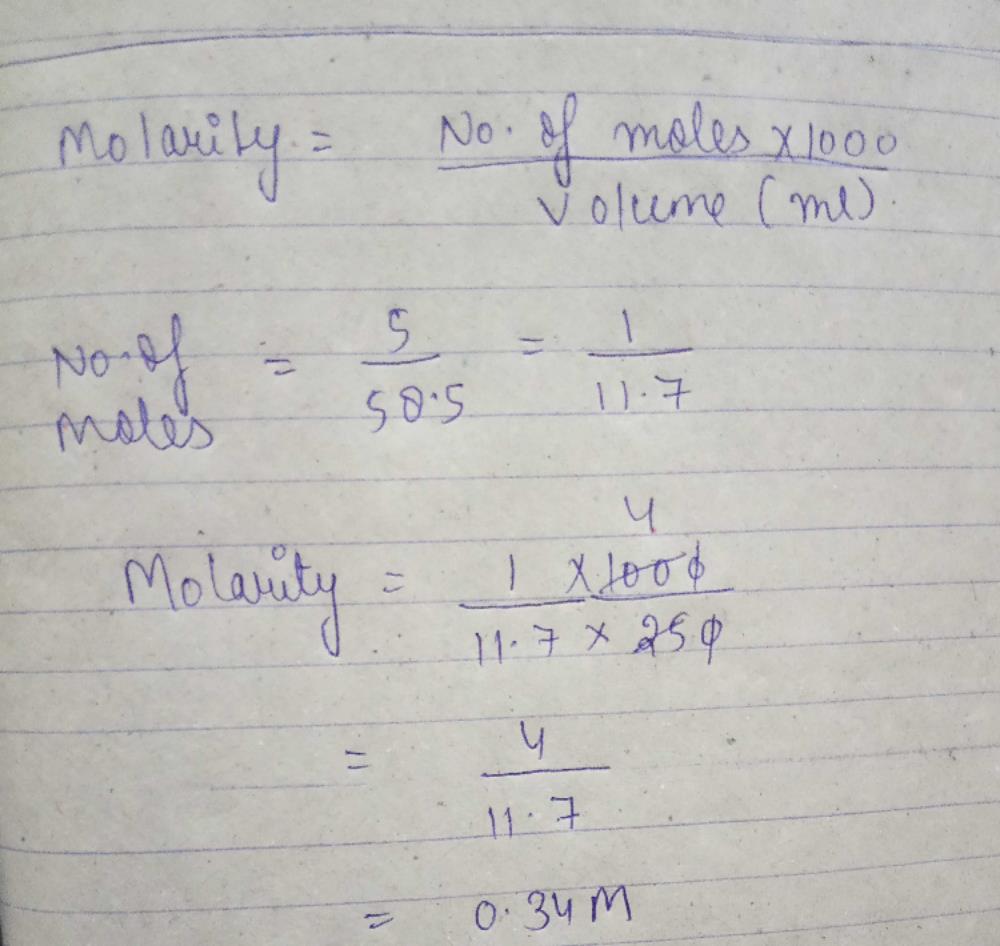 Molarity = No. of moles x 1000
Volume (ml).
No. of moles = 5 / 58.5 = 1 / 11.7
4
Molarity = 1 x 1000
11.7 x 250
= 4 / 11.7
= 0.34 M